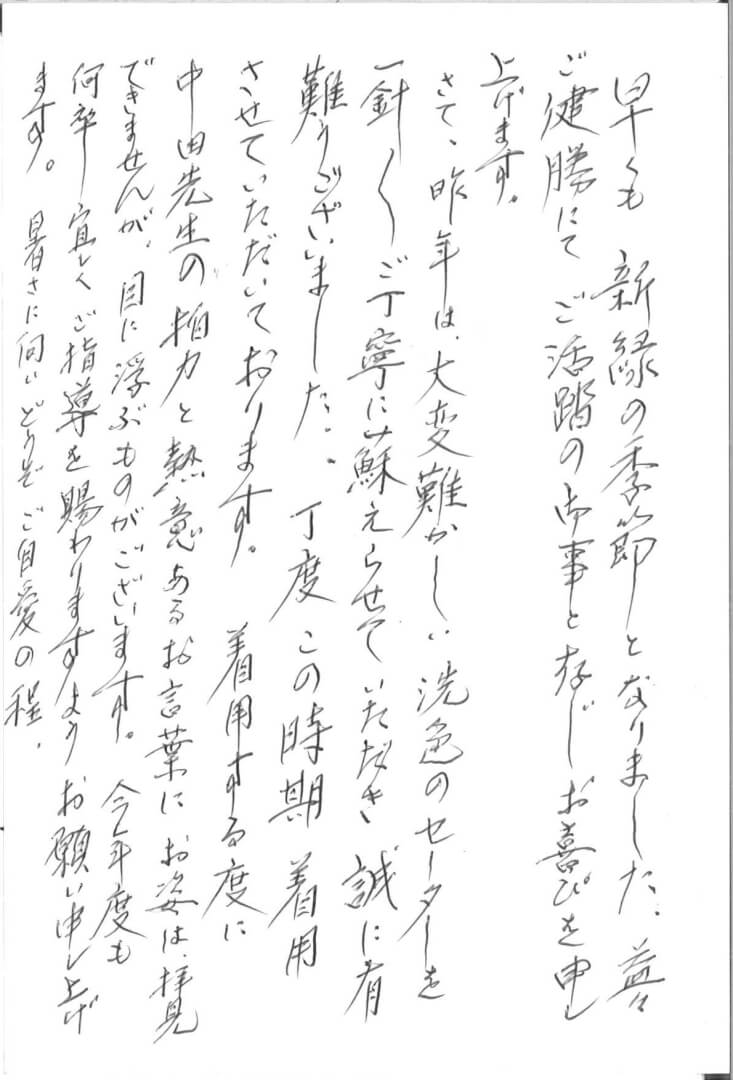 早くも 新緑の季節となりました、益々
ご健勝にて ご活踏の御事と存じお喜びを申し
上げます。
さて、昨年は、大変難かしい洗色のセーターを
一針〱ご丁寧に蘇えらせていただき 誠に有
難うございました。 丁度 この時期 着用
させていただいております。 着用する度に
中田先生の 拍力と熱意あるお言葉に お姿は、拝見
できませんが、目に浮ぶものがございます。 今年度も
何卒 宜しく ご指導を賜わりますよう お願い申し上げ
ます。 暑さに向いどうぞ ご自愛の程、